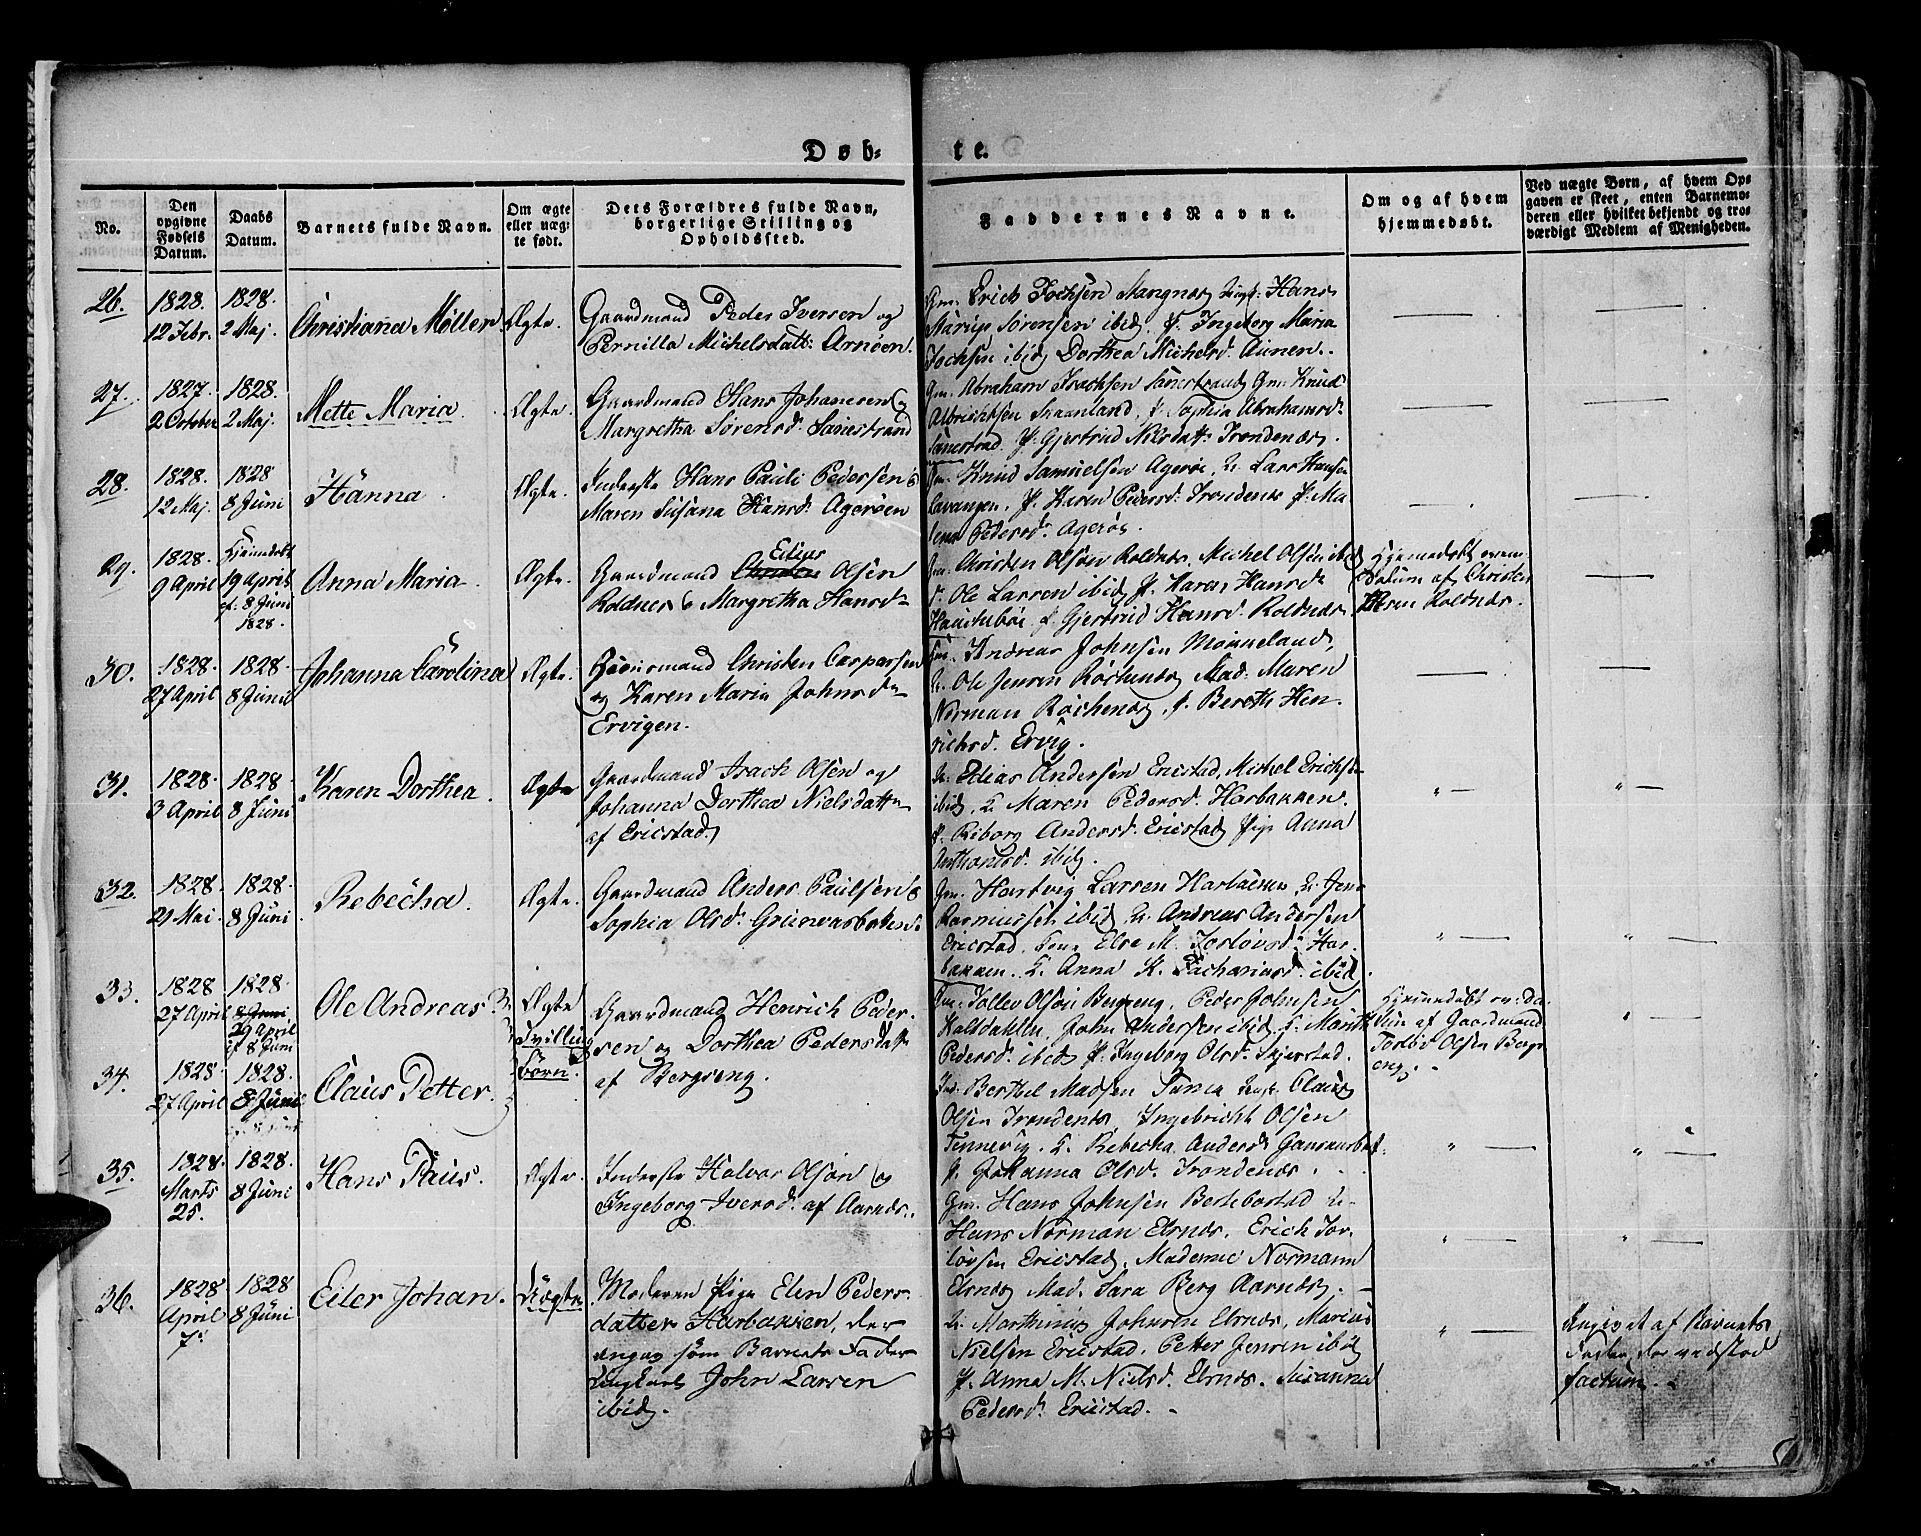 Døb-
te.
No.
Den opgivne Fødsels Datum.
Daabs Datum.
Barnets fulde Navn.
Om ægte eller uægte født.
Dets Forældres fulde Navn, borgerlige Stilling og Opholdssted.
Faddernes Navne.
Om og af hvem hjemmedøbt.
Ved uægte Børn, af hvem Opgaven er skeet, enten Barnemoderen eller hvilket bekjendt og troværdigt Medlem af Menigheden.
26.
1828.
12 Febr.
1828.
2 Maj.
Christiana Möller
Ægte.
Gaardmand Peder Iversen og
Pernilla Michelsdatt: Arnöen.
Gm: Erich Jochsen Mangnæs Ungk: Hans
Märup Sörensen ibid, P. Ingeborg Maria
Jochsen ibid Dorthea Michelsd. Aunen.
27.
1827.
2 October
1828.
2 Maj.
Mette Maria
Ægte.
Gaardmand Hans Johanesen og
Margretha Sörensd. Sanestrand
Gm: Abraham Isachsen Sanestrand Gm: Knud
Albrichtsen Graanland, P. Sophia Abrahamsd.
Sanestrad. P. Gjertrud Nilsdatt: Trondenæs.
28.
1828.
12 Maj.
1828
8 Juni
Hanna
Ægte.
Inderste Hans Pauli Pedersen &
Maren Susana Hansd: Ageröen
Gm: Knud Samuelsen Ageröe, U. Lars Hansen
Lavangen, P. Karen Pedersd: Trondenæs P. Ma
lena Pedersd. Ageröe
29.
1828.
9 April
Hjemmedöbt
19 April
ef: 8 Juni
1828.
Anna Maria
Ægte.
Gaardmand Edias Olsen
Roldnes & Margretha Hansd.
Gm: Christen Olsön Roldnæs, Michel Olsen ibid
Ole Larsen ibid P. Karen Hansd.
P. Gjertrud Hansd. Roldnæs
Hjemmedöbt
Datum af Christen
Roldnæs.
30.
1828.
27 April
1828
8 Junii
Johanna Carolina
Ægte.
Huusmand Christen Caspersen
og Karen Maria Johnsd.
Ervigen.
Gm: Andreas Johnsen Mönneland,
U. Ole Jensen Röchenæs Mad: Maren
Norman Röchenæs, P. Bereth Hen
richsd. Ervig.
31.
1828
3 April
1828
8 Juni
Karen Dorthea
Ægte
Gaardmand Isach Olsen og
Johanna Dorthea Nielsdatt
af Ericstad.
U. Edias Andersen Ericstad, Michel Erichs
ibid, K. Maren Pedersd. Harbakken.
P. Reborg Andersd. Ericstad Pige Anna
Anthonisd. ibid.
32.
1828
29 Mai.
1828.
8 Juni
Rebecha.
Ægte.
Gaardmand Anders Paulsen &
Sophia Olsd.
Gm: Hartvig Larsen U. Jens
Rasmussen ibid, U. Andreas Andersen
Ericstad. Elsa M. Torlövsd. Har-
bakken. K. Anna K. Zachariasd. ibid
33.
1828
27 April
1828
8 Juni
29 April
ef 8 Juni
Ole Andreas
Ægte
Tvilling
börn.
Gaardmand Henrich Peder-
sen og Dorthea Pedersdatt.
af Bergseng.
Gm. Tollev Olsön Bergseng. Peder Johnsen
Kaldahlen, John Andersen ibid P. Marith
Pedersd. ibid P. Ingeborg Olsd. Skjerstad.
Hjemmedöbt
af Gaardmand
Torlöv Olsen Bergs
eng.
34.
1828
27 April
1828.
8 Juni
Claus Petter
Ind: Berthel Madsen Sama Ungk. Claus
Olsen Trondenæs, Ingebricht Olsen
Tennevig. K. Rebecha Andersd.
P. Johanna Olsd. Trondenæs.
35.
1828.
Marts
25.
1828.
8 Juni
Hans Päus.
Ægte.
Inderste Halvor Olsön og
Ingeborg Iversd. af Aarnæs.
Gm. Hans Johnsen U.
Hans Norman Elsnæs. Erich Tor-
lövsen Ericstad, Madame Normann
Elsnæs Mad. Sara Berg Aarnæs.
36.
1828
April
7.
1828
8 Juni
Eiler Johan.
Uægte
Moderen Pige Elen Peders-
datter Harbakken, der
angav som Barnets Fader
Ungkarl John Larsen
ibid.
U. Marthinus Johnsen Elsnæs, Marius
Nielsen Ericstad. Petter Jensen ibid
P. Anna M. Nielsd. Elsnæs. Susanna
Pedersd. Ericstad.
Angivet af Barnets
Fader der vedstod
factum.